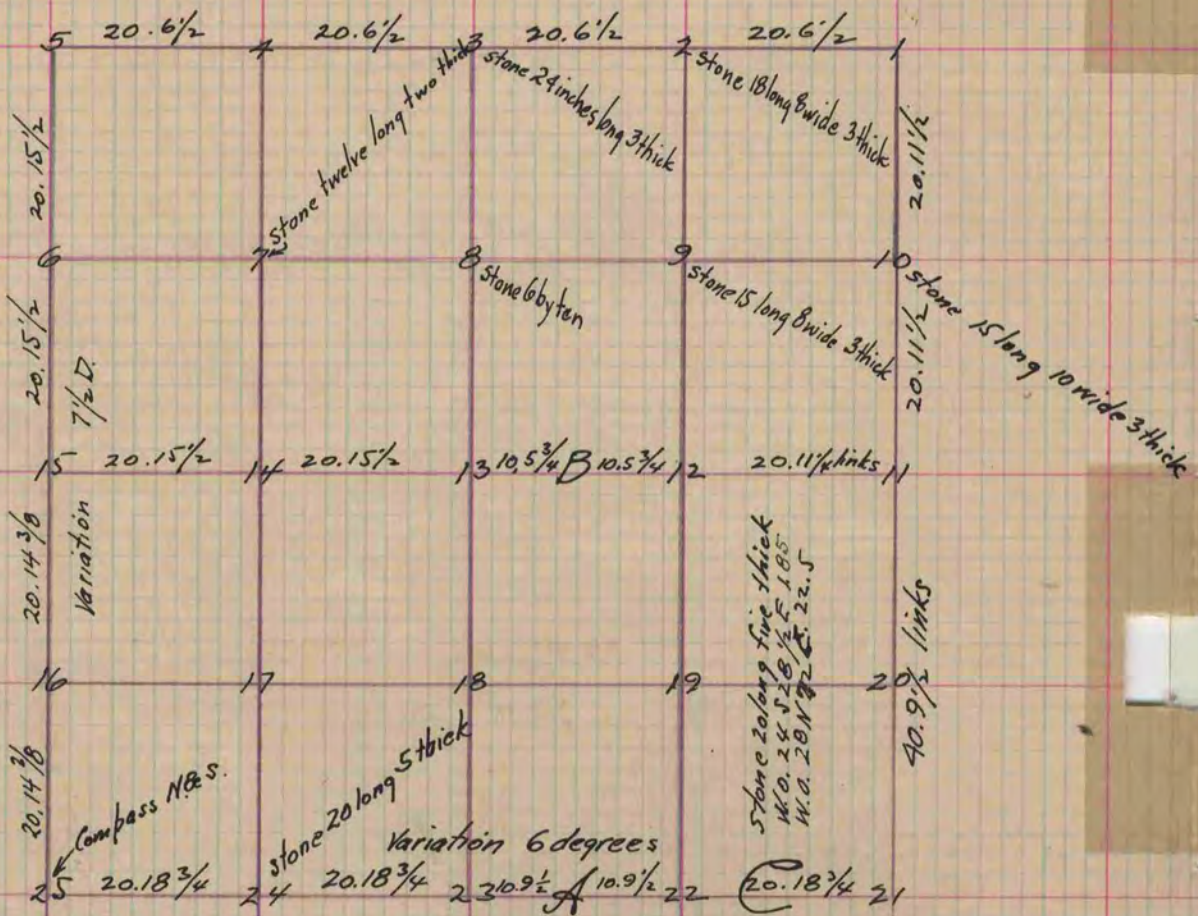 5 20.6 1/2 4 20.6 1/2 3 20.6 1/2 2 20.6 1/2 1
stone twelve long two thick
stone 24 inches long 3 thick
stone 18 long 8 wide 3 thick
20.15 1/2
20.11 1/2
6 7 8 9 10
stone 6 by ten
stone 15 long 8 wide 3 thick
stone 15 long 10 wide 3 thick
20.15 1/2
7 1/2 D.
20.11 1/2
15 20.15 1/2 14 20.15 1/2 13 10.5 3/4 B 10.5 3/4 12 20.11 1/4 links 11
20.14 3/8
Variation
stone 20 long five thick
W.O. 24 S 28 1/2 E 185
W.O. 20 N E. 22.5
40.9 1/2 links
16 17 18 19 20
20.14 3/8
Compass N & S.
stone 20 long 5 thick
Variation 6 degrees
25 20.18 3/4 24 20.18 3/4 23 10.9 1/2 A 10.9 1/2 22 C 20.18 3/4 21